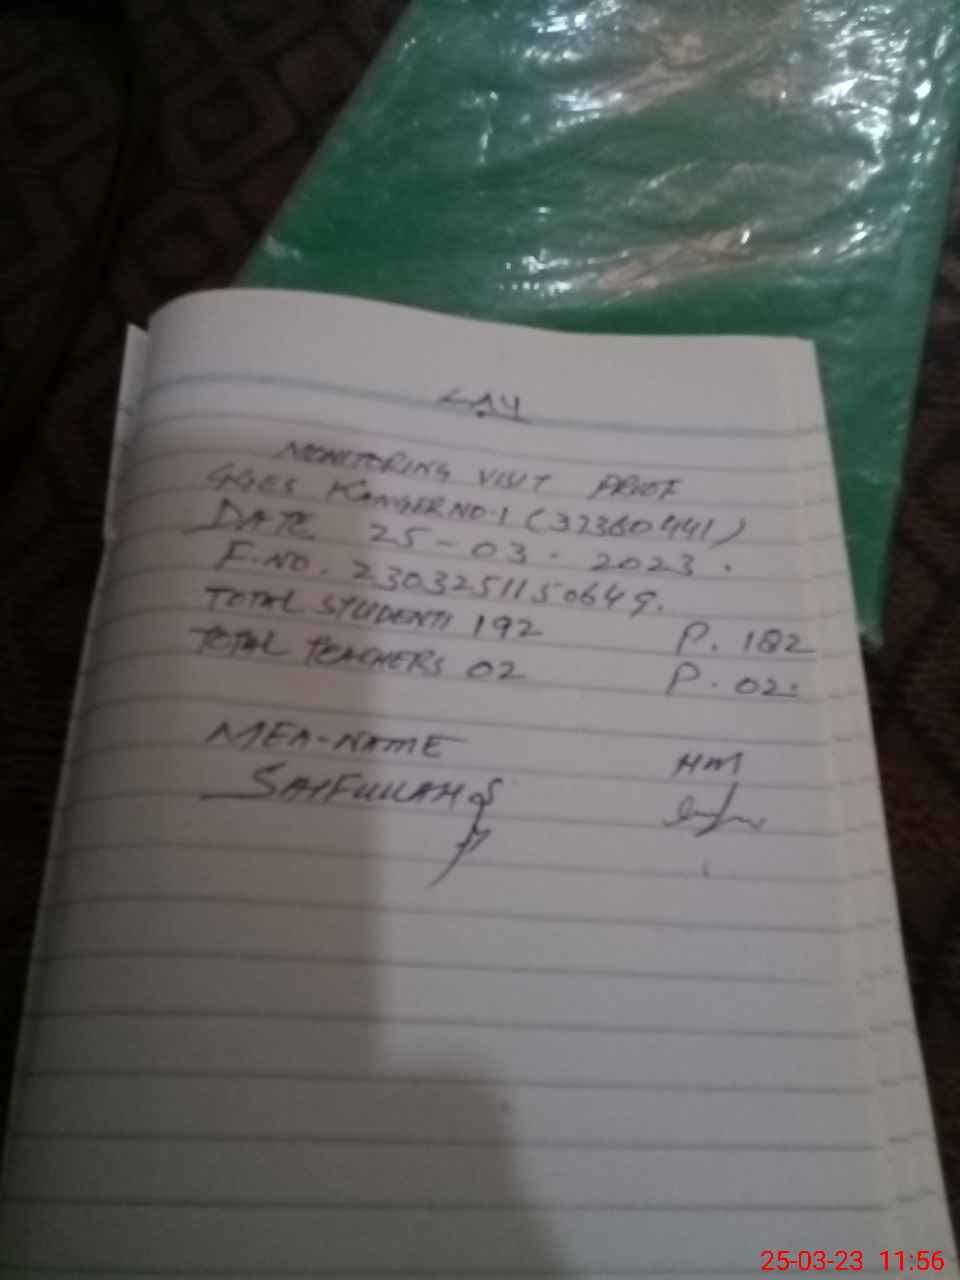 MONITORING VISIT PROOF
GGES KANGER NO.1 (37360441)
DATE 25-03-2023.
F.NO. 2303251150649.
TOTAL STUDENTS 192 P. 182
TOTAL TEACHERS 02 P. 02.
MEA-NAME HM
SAIFULLAH
25-03-23 11:56